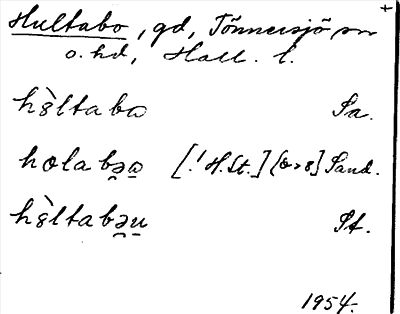 +
Hultabo, gd, Tönnersjö sn
o. hd, Hall. l.
hə̀ltaba Sa.
holabə̯a̲ [! H.St.] [o>8] Sand.
hə̀ltabə̯u̲ St.
1954.